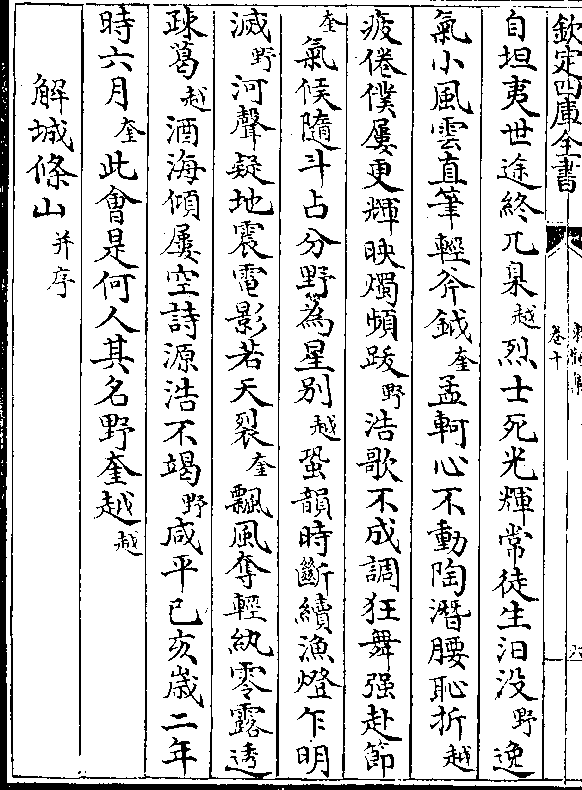 欽定四庫全書
卷十
自坦夷世途終兀臬越烈士死光輝常徒生汨没野逸
氣小風雲直筆輕斧鉞奎孟軻心不動陶潛腰恥折越
疲倦僕屢更輝映燭頻跋野浩歌不成調狂舞强赴節
奎氣候隨斗占分野為星别越蛩韻時斷續漁燈乍明
滅野河聲疑地震電影若天裂奎飄風奪輕紈零露透
疎葛越酒海傾屢空詩源浩不竭野咸平已亥嵗二年
時六月奎此會是何人其名野奎越越
解城條山并序